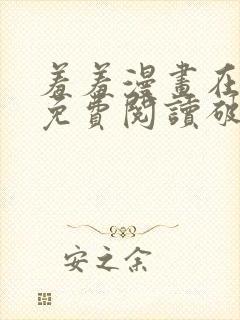 羞羞漫畫在
免費閱讀破
安之余